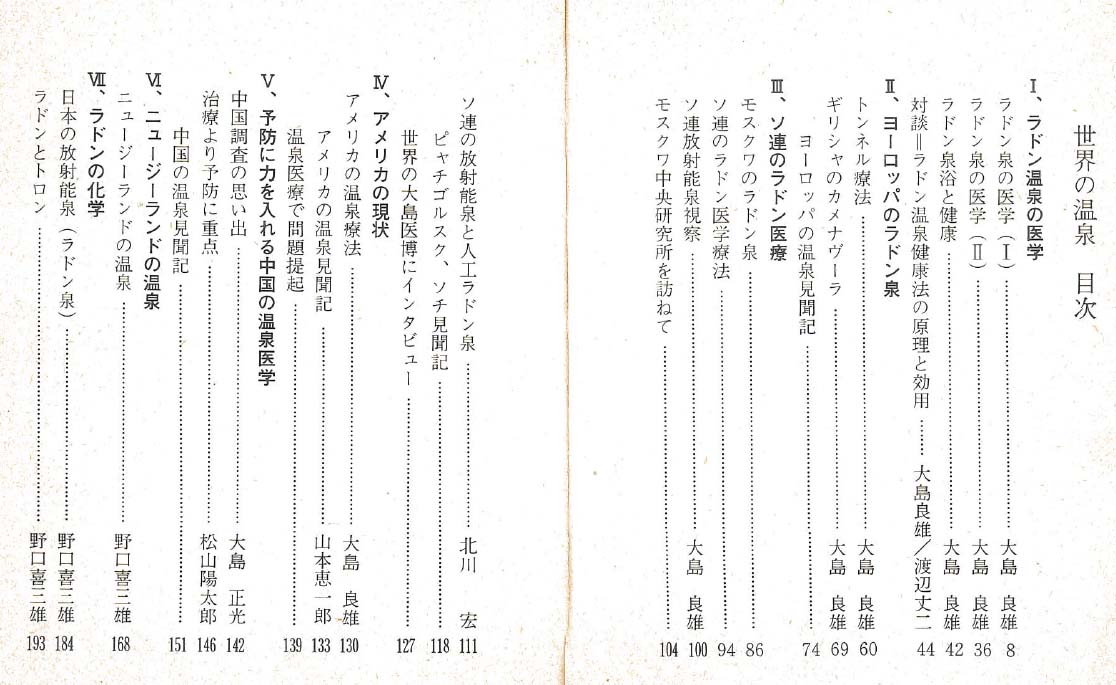 世界の温泉　目次
Ⅰ、ラドン温泉の医学
ラドン泉の医学（Ⅰ）……大島　良雄 8
ラドン泉の医学（Ⅱ）……大島　良雄 36
ラドン泉浴と健康……大島　良雄 42
対談＝ラドン温泉健康法の原理と効用……大島良雄／渡辺丈二 44
Ⅱ、ヨーロッパのラドン泉
トンネル療法……大島　良雄 60
ギリシャのカメナヴーラ……大島　良雄 69
ヨーロッパの温泉見聞記…… 74
Ⅲ、ソ連のラドン医療
モスクワのラドン泉…… 86
ソ連のラドン医学療法…… 94
ソ連放射能泉視察……大島　良雄 100
モスクワ中央研究所を訪ねて…… 104
ソ連の放射能泉と人工ラドン泉……北川　宏 111
ピャチゴルスク、ソチ見聞記…… 118
世界の大島医博にインタビュー…… 127
Ⅳ、アメリカの現状
アメリカの温泉療法……大島　良雄 130
アメリカの温泉見聞記……山本恵一郎 133
温泉医療で問題提起…… 139
Ⅴ、予防に力を入れる中国の温泉医学
中国調査の思い出……大島　正光 142
治療より予防に重点……松山陽太郎 146
中国の温泉見聞記…… 151
Ⅵ、ニュージーランドの温泉
ニュージーランドの温泉……野口喜三雄 168
Ⅶ、ラドンの化学
日本の放射能泉（ラドン泉）……野口喜三雄 184
ラドンとトロン……野口喜三雄 193